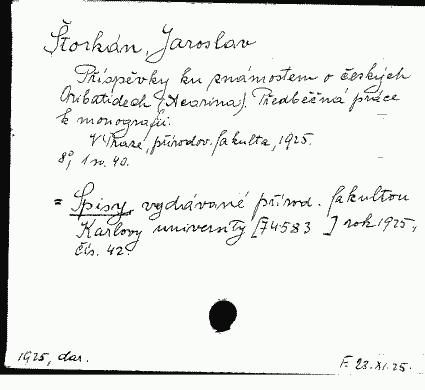 Štorkán, Jaroslav
Příspěvky ku známostem o českých
Oribatidech (Acarina). Předběčná práce
k monografii.
V Praze, přírodov. fakulta, 1925.
8°, 1 sv. 40.
= Spisy vydávané přírod. fakultou
Karlovy university [74583 ] rok 1925,
čís. 42.
1925, dar.
F. 28.XI.25.